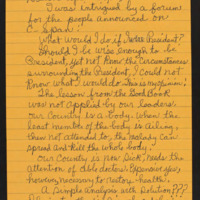 I was intrigued by a forums
for the people announced on
C-Span
What would I do if I was President?
Should I be wise enough to be
President, yet not know the circumstances
surrounding the President, I could not
know what I would do. This is my opinion!
The lesson from the Good Book
was not applied by our leaders.
Our Country is a body. When the
least member of the body is ailing,
then not attended to, the malady can
spread and kill the whole body!
Our Country is now sick, needs the
attention of able doctors. Expensive yes,
however, necessary to restore health!
A simple analysis with solution???